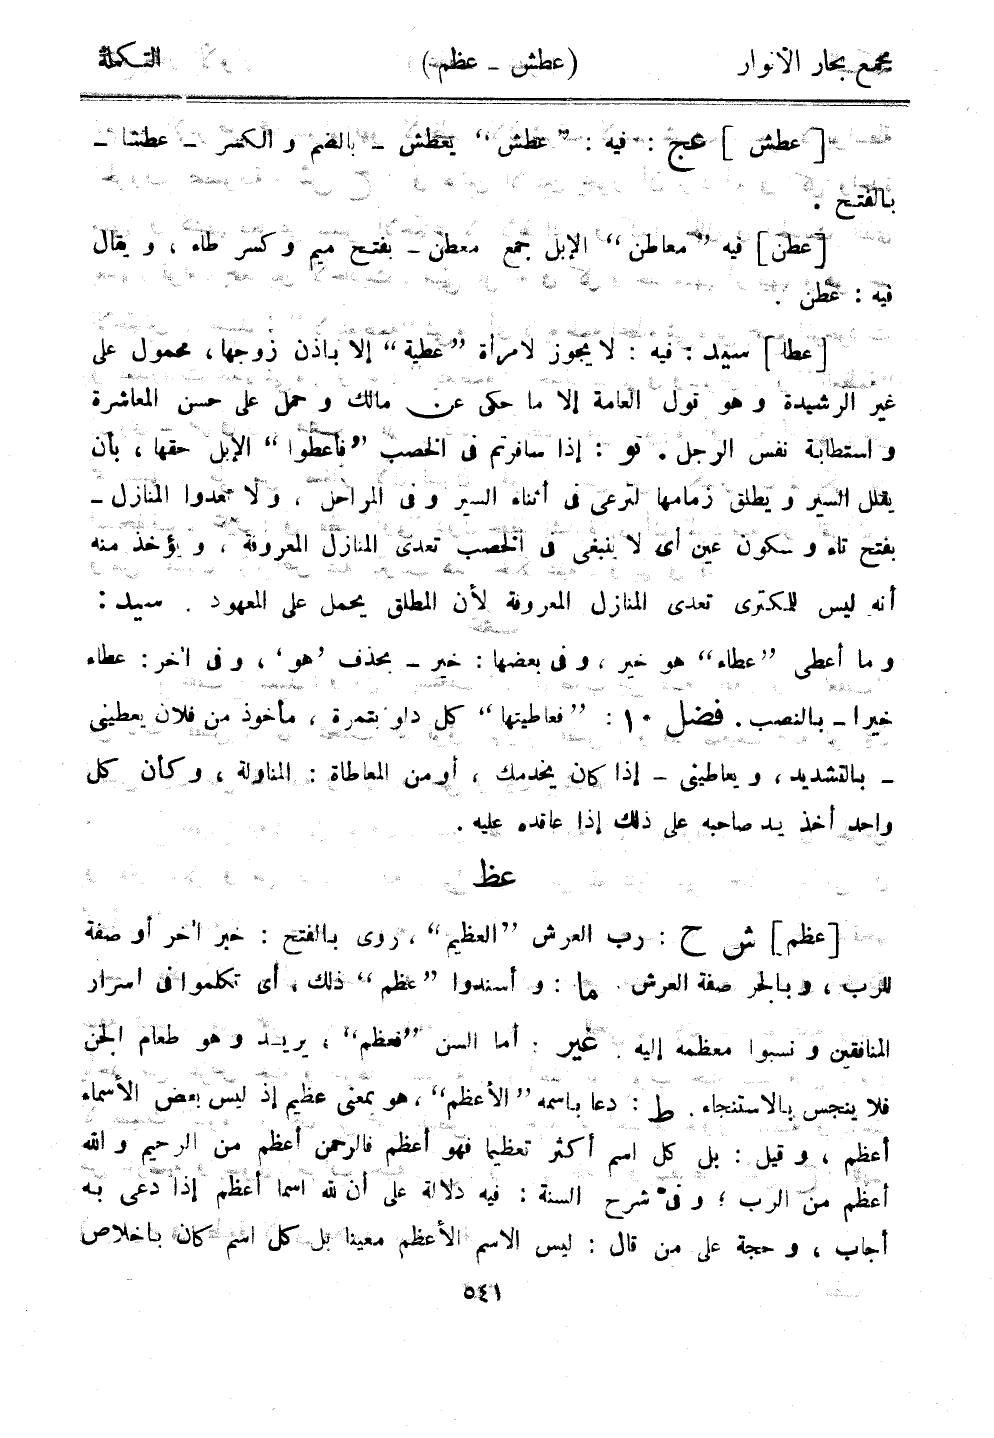 مجمع بحار الأنوار (عطش - عظم) التكملة
[عطش] عج : فيه : "عطش" يعطش - بالضم و الكسر - عطشا -
بالفتح .
[عطن] فيه "معاطن" الإبل جمع معطن - بفتح ميم و كسر طاء ، و يقال
فيه : عطن .
[عطا] سيد : فيه : لا يجوز لامرأة "عطية" إلا باذن زوجها، محمول على
غير الرشيدة و هو قول العامة إلا ما حكى عن مالك و حمل على حسن المعاشرة
و استطابة نفس الرجل . نو : إذا سافرتم فى الخصب "فأعطوا" الإبل حقها ، بأن
يقلل السير و يطلق زمامها لترعى فى أثناء السير و فى المراحل ، و لا تعدوا المنازل -
بفتح تاء و سكون عين أى لا ينبغى فى الخصب تعدى المنازل المعروفة ، و يؤخذ منه
أنه ليس للمكترى تعدى المنازل المعروفة لأن المطلق يحمل على المعهود . سيد :
و ما أعطى "عطاء" هو خير ، و فى بعضها : خير - بحذف 'هو' ، و فى آخر : عطاء
خيرا - بالنصب . فضل ١٠ : "فعاطيتها" كل دلو بتمرة ، مأخوذ من فلان يعطينى
- بالتشديد ، و يعاطينى - إذا كان يخدمك ، أو من المعاطاة : المناولة ، و كأن كل
واحد أخذ يد صاحبه على ذلك إذا عاقده عليه .
عظ
[عظم] ش ح : رب العرش "العظيم" ، روى بالفتح : خبر آخر أو صفة
للرب ، و بالجر صفة العرش . ما : و أسندوا "عظم" ذلك ، أى تكلموا فى أسرار
المنافقين و نسبوا معظمه إليه . غير : أما السن "فعظم" ، يريد و هو طعام الجن
فلا ينجس بالاستنجاء . ط : دعا باسمه "الأعظم" ، هو بمعنى عظيم إذ ليس بعض الأسماء
أعظم ، و قيل : بل كل اسم أكثر تعظيما فهو أعظم فالرحمن أعظم من الرحيم و الله
أعظم من الرب ؛ و فى شرح السنة : فيه دلالة على أن لله اسما أعظم إذا دعى به
أجاب ، و حجة على من قال : ليس الاسم الأعظم معينا بل كل اسم كان باخلاص
٥٤١